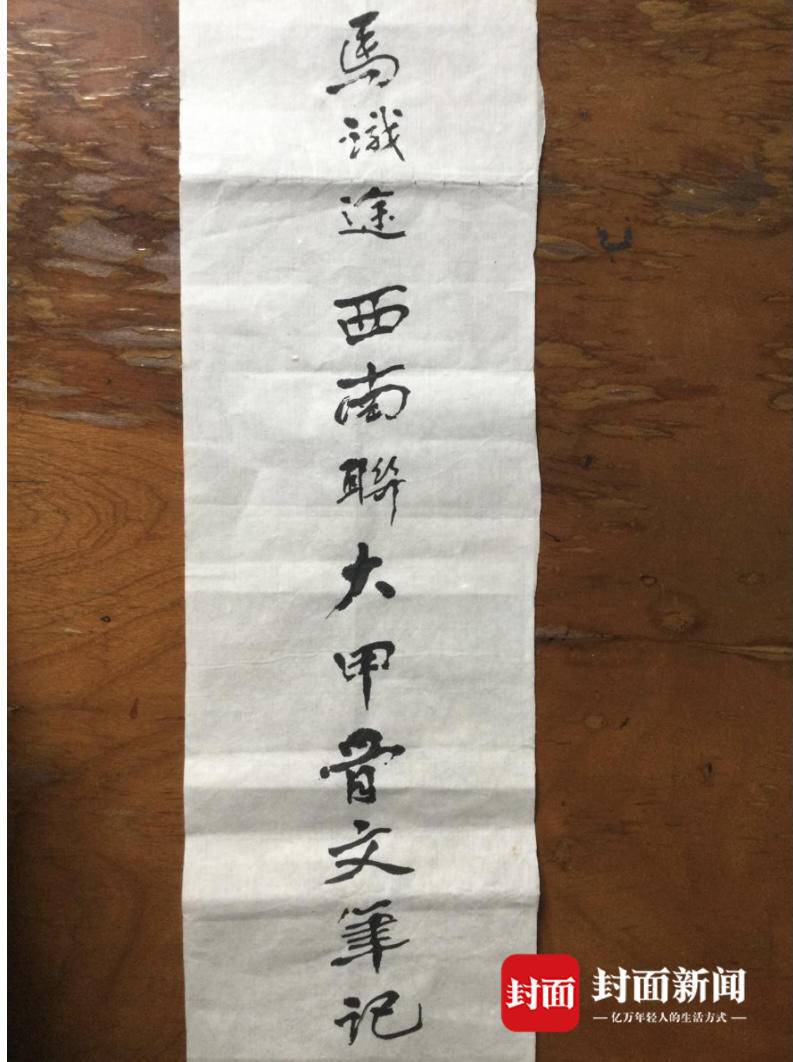 馬識途 西南聯大甲骨文筆記
封面
封面新闻
亿万年轻人的生活方式